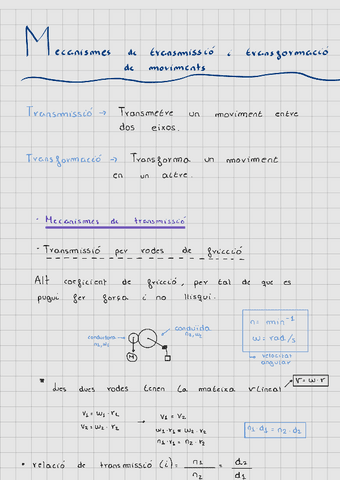 Mecanismes de transmissió i transformació
de moviments
Transmissió → Transmetre un moviment entre
dos eixos.
Transformació → Transforma un moviment
en un altre.
· Mecanismes de transmissió
· Transmissió per rodes de fricció
Alt coeficient de fricció, per tal de que es
pugui fer força i no llisqui.
conductora
n₁, ω₁
conduida
n₂, ω₂
M
n = min⁻¹
ω = rad/s
→ velocitat
angular
* dues dues rodes tenen la mateixa v lineal → v = ω · r
v₁ = ω₁ · r₁
v₂ = ω₂ · r₂
→
v₁ = v₂
ω₁ · r₁ = ω₂ · r₂
n₁ · r₁ = n₂ · r₂
n₁ · d₁ = n₂ · d₂
* relació de transmissió (i) = n₁ / n₂ = d₂ / d₁